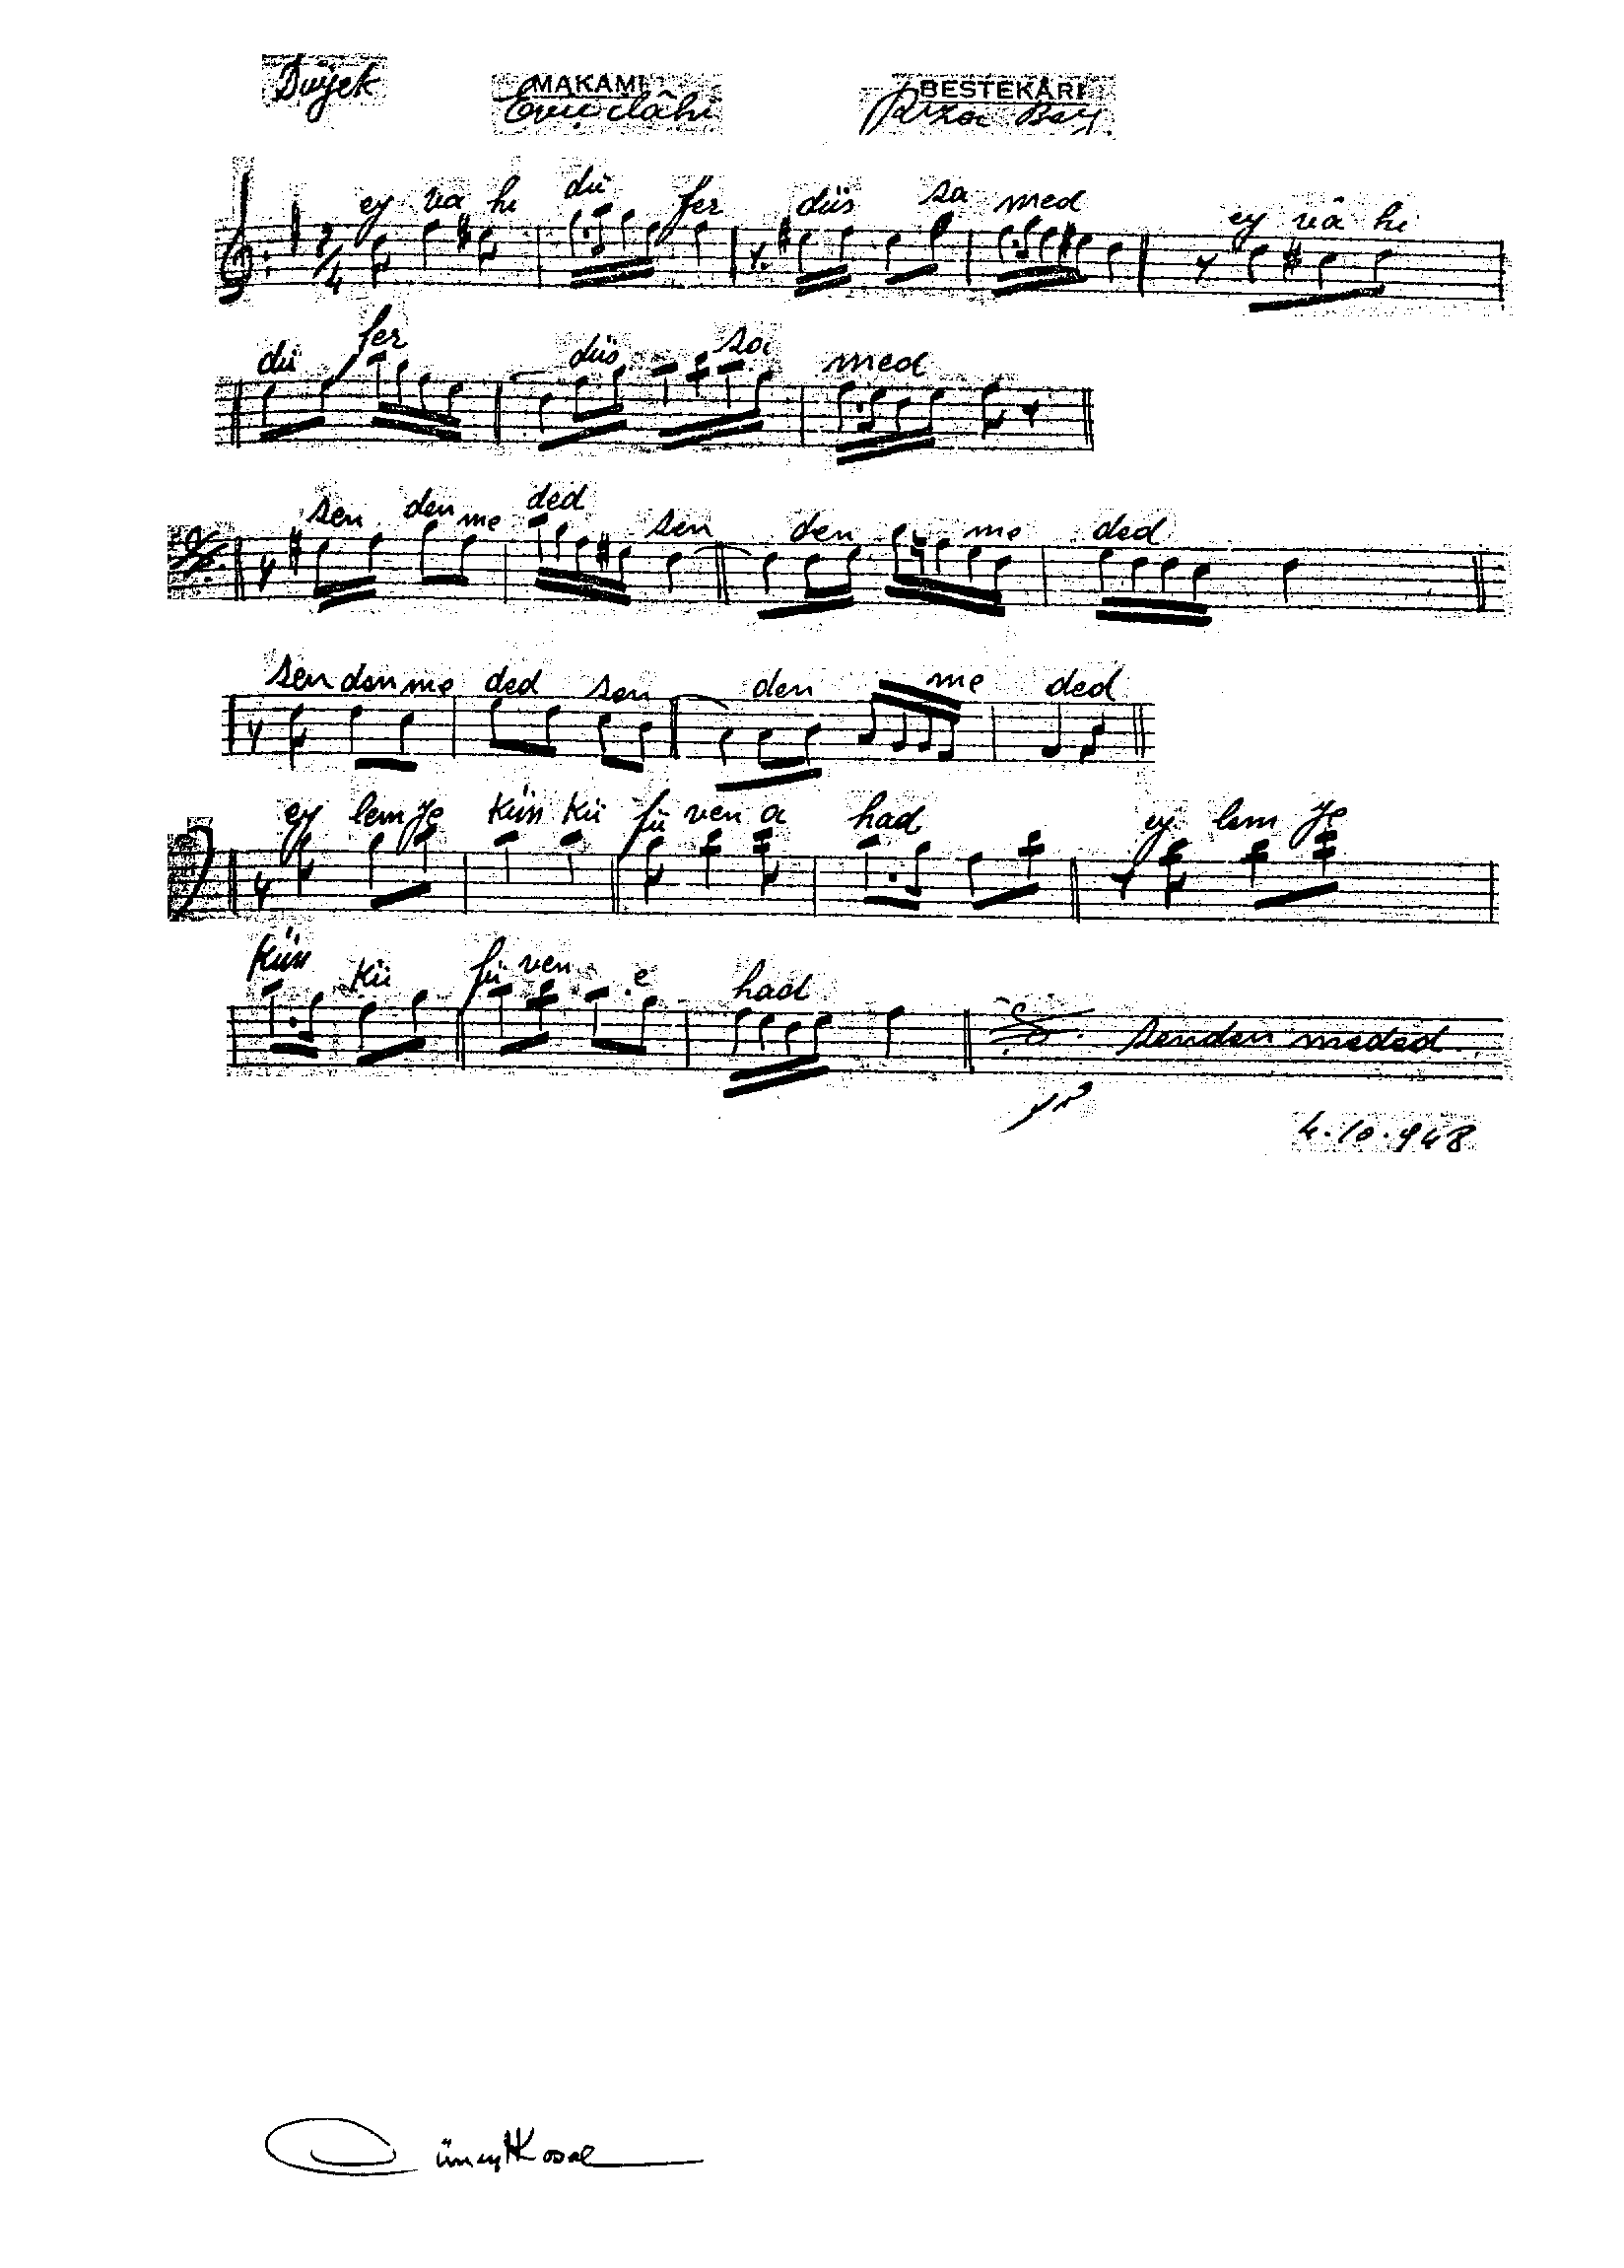 Düyek MAKAMI BESTEKÂRI
Evıc ilâhi Rıza Bey
ey va hi dü fer düs sa med ey vâ hi
2/4
dü fer düs sa med
sen den me ded sen den me ded
sen den me ded sen den me ded
ey lem ye kün kü fü ven a had ey lem ye
kün kü fü ven e had
senden meded
4.10.948
Cüneyt Kosal